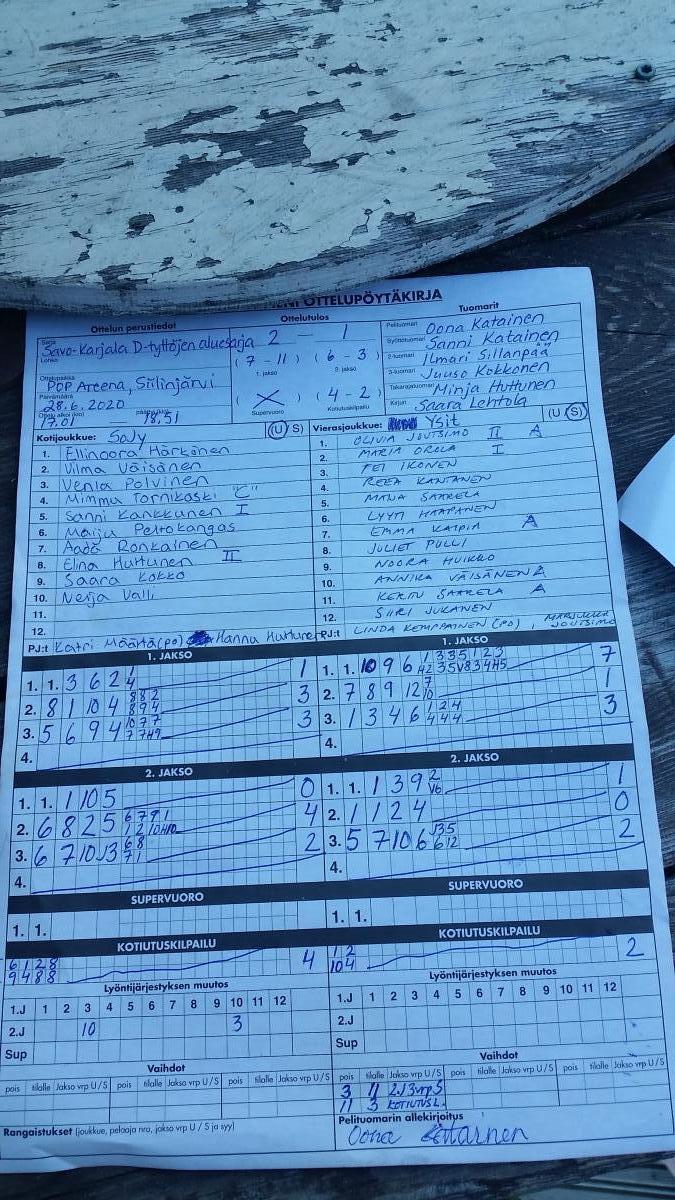 OTTELUPÖYTÄKIRJA
Ottelun perustiedot
Ottelutulos
Tuomarit
Sarja
Savo-Karjala D-tyttöjen aluesarja
2 - 1
(7 - 11) (6 - 3)
1. jakso 2. jakso
(X) (4 - 2)
Supervuoro Kotiutuskilpailu
Ottelupaikka
POP Areena, Siilinjärvi
Päivämäärä
28.6.2020
17.01
18.51
Pelituomari Oona Katainen
Syöttötuomari Sanni Katainen
2-tuomari Ilmari Sillanpää
3-tuomari Juuso Kokkonen
Takarajatuomari Minja Huttunen
Kirjuri Saara Lehtola
Kotijoukkue: SaJy (U/S)
1. Ellinoora Härkönen
2. Vilma Väisänen
3. Venla Polvinen
4. Mimmu Tornikoski "C"
5. Sanni Kankkunen I
6. Maiju Peltokangas
7. Aada Ronkainen
8. Elina Huttunen II
9. Saara Kokko
10. Nerja Valli
11.
12.
PJ:t Katri Määttä (po) Hannu Huttunen
Vierasjoukkue: Ysit (U/S)
1. OLIVIA JOUTSIMO II A
2. MARIA OROLA I
3. FEI IKONEN
4. REEA KANTANEN
5. MANA SAARELA
6. LYYTI HAAPANEN
7. EMMA KAIPIA A
8. JULIET PULLI
9. NOORA HUIKKO
10. ANNIKA VÄISÄNEN A
11. KERTU SAARELA A
12. SIIRI JUKANEN
PJ:t LINDA KEMPPAINEN (PO), MARJUKKA JOUTSIMO
1. JAKSO
1. 1. 3 6 2 4 1
2. 8 1 10 4 3
3. 5 6 9 4 3
4.
1. JAKSO
1. 1. 10 9 6 7
2. 7 8 9 12 1
3. 1 3 4 6 3
4.
2. JAKSO
1. 1. 1 10 5 0
2. 6 8 2 5 4
3. 6 7 10 J3 2
4.
2. JAKSO
1. 1. 1 3 9 1
2. 1 1 2 4 0
3. 5 7 10 6 2
4.
SUPERVUORO
1. 1.
SUPERVUORO
1. 1.
KOTIUTUSKILPAILU
6 1 2 8 4
9 4 8 8
KOTIUTUSKILPAILU
1 2 2
10 4
Lyöntijärjestyksen muutos
1.J 1 2 3 4 5 6 7 8 9 10 11 12
2.J 10 3
Sup
Lyöntijärjestyksen muutos
1.J 1 2 3 4 5 6 7 8 9 10 11 12
2.J
Sup
Vaihdot
pois tilalle Jakso vrp U/S pois tilalle Jakso vrp U/S pois tilalle Jakso vrp U/S
Vaihdot
pois tilalle Jakso vrp U/S pois tilalle Jakso vrp U/S pois tilalle Jakso vrp U/S
3 11 2J3vrpS
11 3 KOTIUTUSL.
Rangaistukset (joukkue, pelaaja nro, jakso vrp U / S ja syy)
Pelituomarin allekirjoitus
Oona Katainen